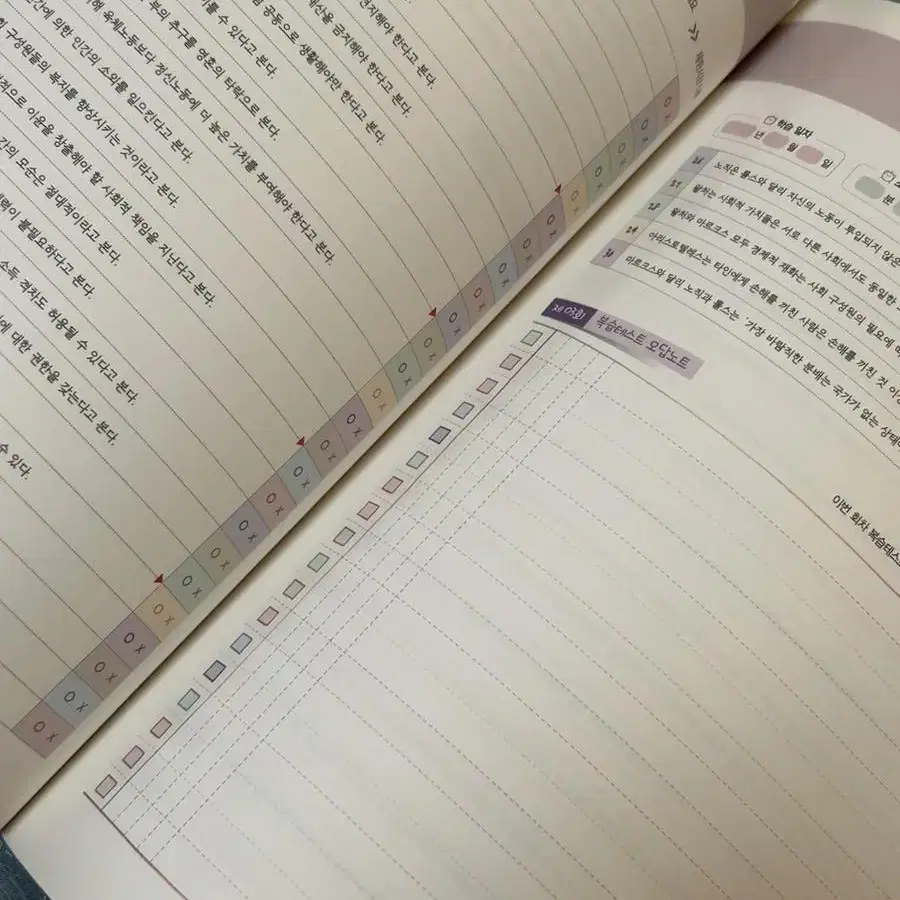 전지해야 한다고 본다.
산을 금지해야 한다고 본다.
공동으로 생활해야만 한다고 본다.
를 수 있다고 본다.
부의 추구를 영혼의 타락으로 본다.
육체노동보다 정신노동에 더 높은 가치를 부여해야 한다고 본다.
간에 의한 인간의 소외를 일으킨다고 본다.
구성원들의 복지를 향상시키는 것이라고 본다.
적으로 이윤을 창출해야 할 사회적 책임을 지닌다고 본다.
간의 모순은 절대적이라고 본다.
이 불필요하다고 본다.
소득 격차도 허용될 수 있다고 본다.
에 대한 권한을 갖는다고 본다.
수 있다.
O X
학습 일자
년 월 일
분
노직은 롤스와 달리 자신의 노동이 투입되지 않은
왈처는 사회적 가치들은 서로 다른 사회에서도 동일한
왈처와 마르크스 모두 경제적 재화는 사회 구성원의 필요에 따
아리스토텔레스는 타인에게 손해를 끼친 사람은 손해를 끼친 것 이상
마르크스와 달리 노직과 롤스는 '가장 바람직한 분배는 국가가 없는 상태에
이번 회차 복습테스
제 09회 복습테스트 오답노트